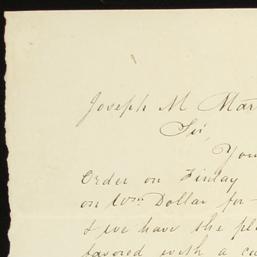 Joseph M Mar
Sir,
You
Order on Finlay
on Wm Dollar for
& we have the ple
favored with a co